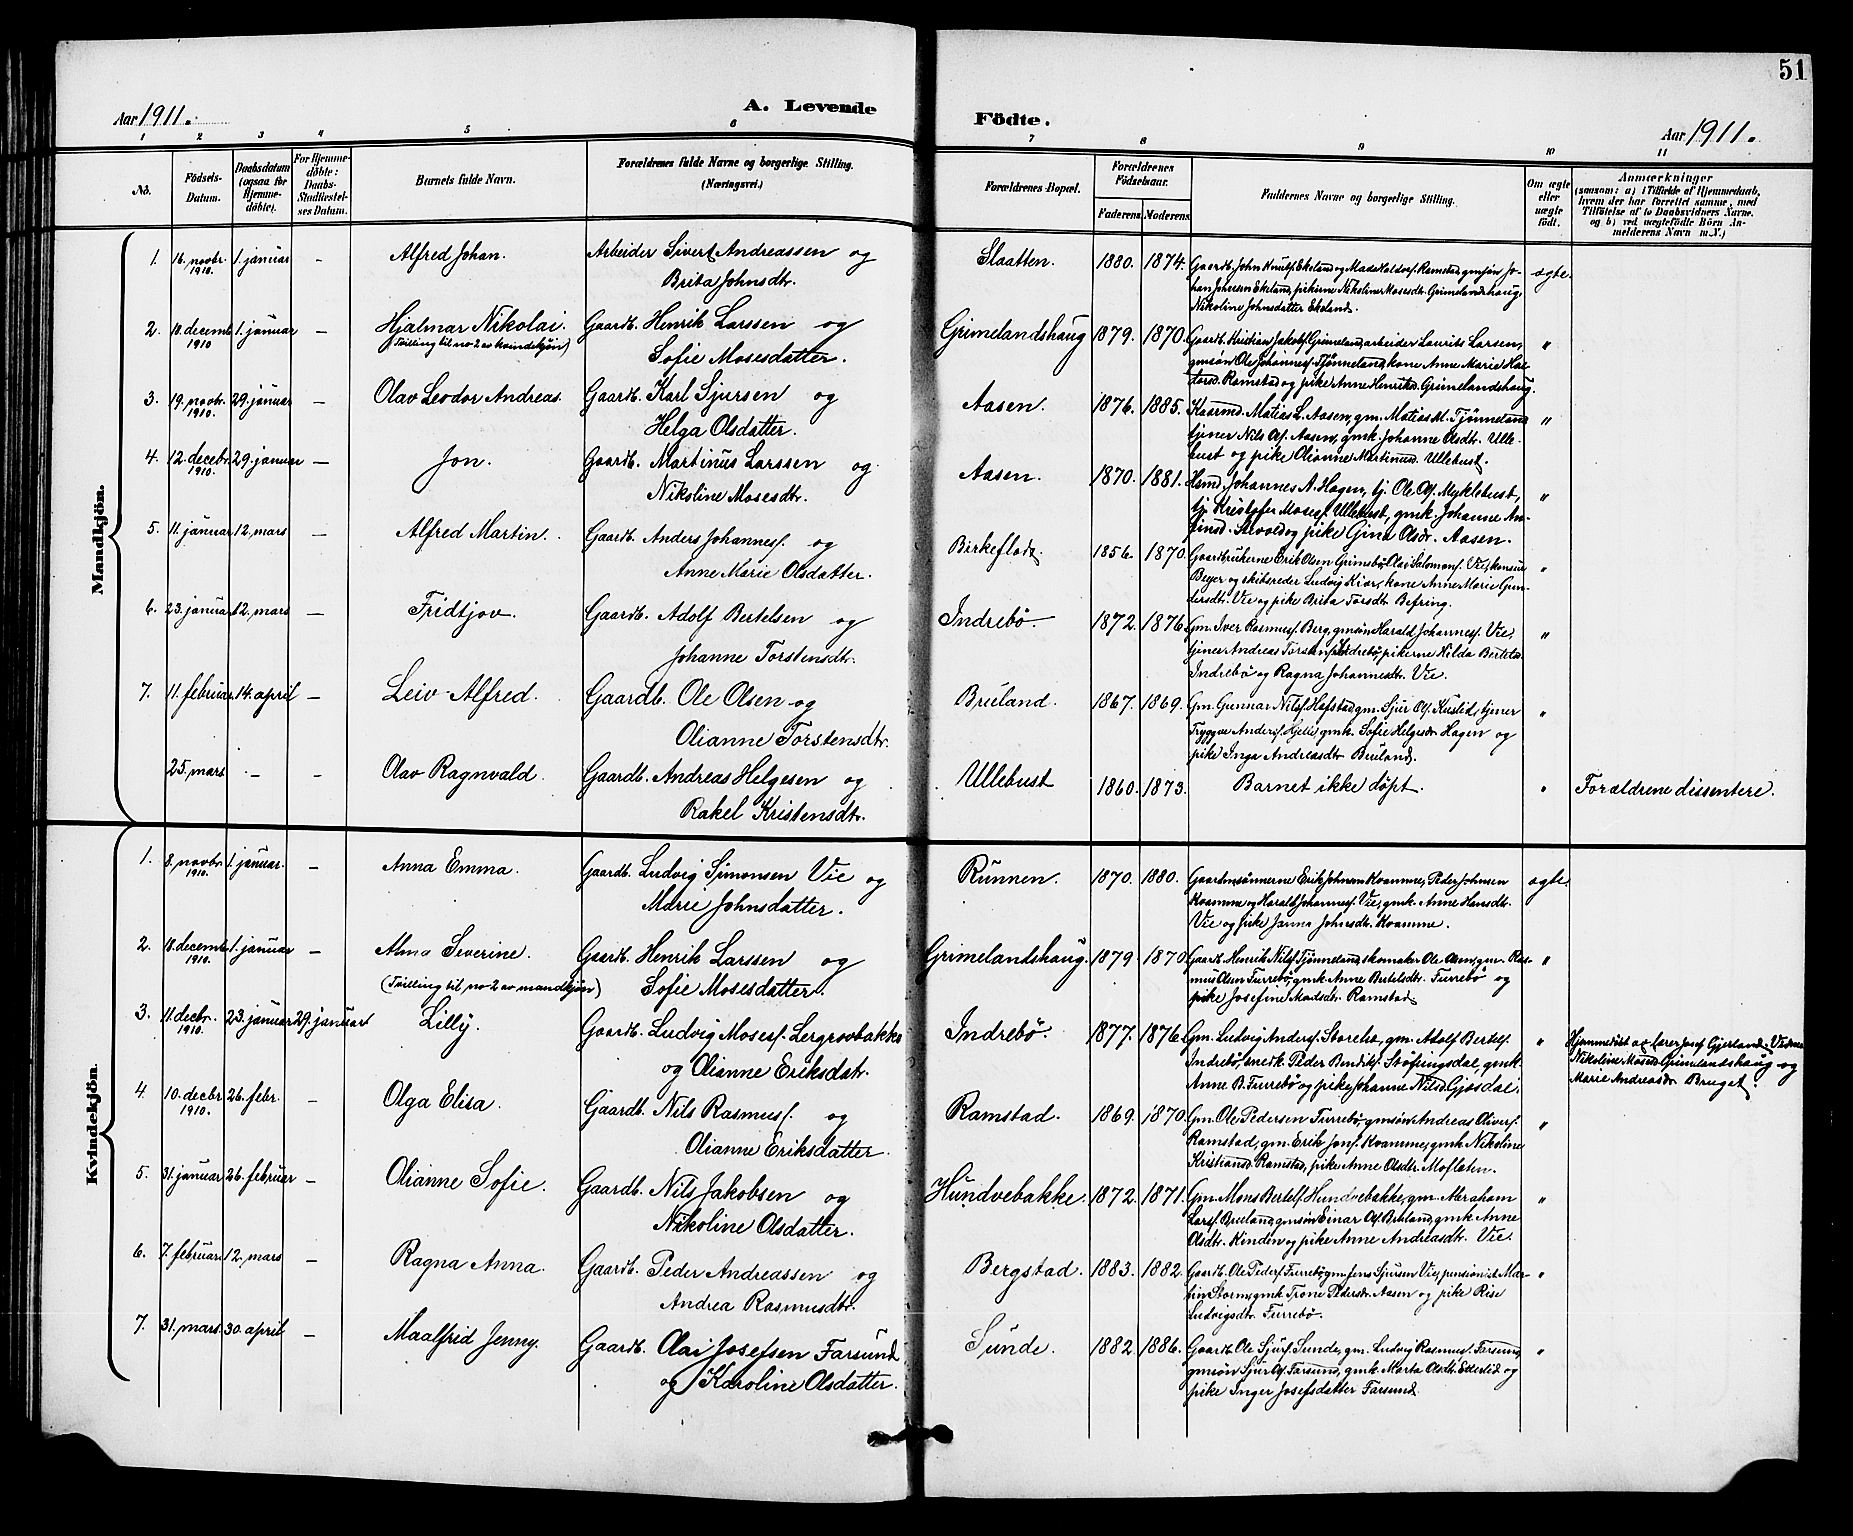 51
Aar 1911.
A. Levende
Födte.
Aar 1911.
1 2 3 4 5 6 7 8 9 10 11
No.
Födsels-Datum.
Daabsdatum (ogsaa for Hjemme-döbte).
For Hjemme-döbte: Daabs-Stadfæstel-ses Datum.
Barnets fulde Navn.
Forældrenes fulde Navne og borgerlige Stilling. (Næringsvei.)
Forældrenes Bopæl.
Forældrenes Födselsaar.
Faderens. Moderens.
Faddernes Navne og borgerlige Stilling.
Om ægte eller uægte födt.
Anmærkninger
(saasom: a) i Tilfælde af Hjemmedaab, hvem der har forrettet samme, med Tilföielse af to Daabsvidners Navne, og b) ved uægtefödte Börn An-melderens Navn m. V.)
Mandkjön.
1. 16. novbr. 1910. 1. januar – Alfred Johan. Arbeider Sivert Andreassen og
Brita Johnsdtr. Slaatten. 1880. 1874. Gaardb. John Knutf. Ekeland og Mads Haldorf. Ramstad, gmsøn Jo-
han Johnsen Ekeland, pikerne Nikoline Mosesdtr. Grimelandshaug,
Nikoline Johnsdatter Ekeland. ægte.
2. 10. decemb. 1910 1. januar – Hjalmar Nikolai. Gaardb. Henrik Larssen og
(Tvilling til no 2 av kvindekjön) Sofie Mosesdatter. Grimelandshaug 1879. 1870. Gaardb. Kristian Jakobf. Grimeland, arbeider Laurits Larsen,
gmsøn Ole Johannesf. Tjønneland, kone Anne Marie Hal-
dorsd. Ramstad og pike Anne Henriksd. Grimelandshaug. "
3. 19. novbr. 1910. 29. januar – Olav Leodor Andreas. Gaardb. Karl Sjursen og
Helga Olsdatter. Aasen. 1876. 1885. Kaarmd. Matias L. Aasen, gm. Matias M. Tjønneland
tjener Nils Olf. Aasen, gmk. Johanne Olsdtr. Ulle-
bust og pike Olianne Martinusd. Ullebust. "
4. 12. decebr. 1910. 29. januar – Jon. Gaardb. Martinus Larssen og
Nikoline Mosesdtr. Aasen. 1870. 1881. Hsmd. Johannes A. Hagen, tj. Ole Olf. Myklebust,
tj. Kristofer Mosesf. Ullebust, gmk. Johanne An-
og pike Gina Olsdr. Aasen. "
5. 11. januar 12. mars – Alfred Martin. Gaardb. Anders Johannesf. og
Anne Marie Olsdatter. 1856. 1870. Gaardbrukerne Erik Olsen Grimsbø, Olai Salomonf. Vie, konsul
Beyer og skibsreder Ludvig Kiær, kone Anne Marie Gun-
dersdt. Vie og pike Brita Torsdtr. Befring. "
6. 23. januar 12. mars – Fridtjov. Gaardb. Adolf Bertelsen og
Johanne Torstensdtr. Indrebö. 1872. 1876. Gm. Iver Rasmusf. Berg, gmsøn Harald Johannesf. Vie,
tjener Andreas Torstenf. Indrebø, pikerne Hilda Bertelsd.
Indrebø og Ragna Johannesdtr. Vie. "
7. 11. februar 14. april – Leiv Alfred. Gaardb. Ole Olsen og
Olianne Torstensdtr. Bruland. 1867. 1869. Gm. Gunnar Nilsf. Hafstad, gm. Sjur Olf. Kuslid, tjener
Tryggve Andersf. Hjelle, gmk. Sofie Helgesdr. Hagen og
pike Inga Andreasdtr. Bruland. "
25. mars – – Olav Ragnvald. Gaardb. Andreas Helgesen og
Rakel Kristensdtr. Ullebust 1860. 1873. Barnet ikke døpt. " Forældrene dissentere.
Kvindekjön.
1. 8. novbr. 1910. 1. januar. – Anna Emma. Gaardb. Ludvig Simonsen Vie og
Marie Johnsdatter. Runnen. 1870. 1880. Gaardmsønnerne Erik Johnsen Kvamme, Peder Johnsen
Kvamme og Harald Johannesf. Vie, gmk. Anne Hansdt.
Vie og pike Janna Johnsdtr. Kvamme. ægte.
2. 10. decemb. 1910. 1. januar – Alma Severine. Gaardb. Henrik Larssen og
(Tvilling til no 2 av mandkjön) Sofie Mosesdatter. Grimelandshaug. 1879. 1870. Gaardb. Henrik Nilsf. Tjønneland, skomaker Ole Olsen, gm. Ras-
mus Olsen Furrebø, gmk. Anne Bertelsdtr. Furrebø og
pike Josefine Madsdtr. Ramstad "
3. 11. decbr. 1910. 23. januar 29. januar Lilly. Gaardb. Ludvig Mosesf. Lergrovbakke
og Olianne Eriksdatr. Indrebö. 1877. 1876. Gm. Ludvig Andersf. Storehs, gm. Adolf Bertelf.
Indrebø, smedk. Peder Bendikf. Støfringsdal, gmk.
Anne B. Furrebø og pike Johanne Nilsd. Gjøsdal. " Hjemmedöbt av lærer Josef Gjerland. Vidner
Nikoline Mosesd. Grimelandshaug og
Marie Andreasdr. Bruget.
4. 10. decbr. 1910. 26. febr. – Olga Elisa. Gaardb. Nils Rasmusf. og
Olianne Eriksdatter. Ramstad. 1869. 1870. Gm. Ole Pedersen Furrebø, gmsøn Andreas Oliverf.
Ramstad, gm. Erik Jonf. Kvamme, gmk. Nikoline
Kristiansd. Ramstad, pike Anne Olsdtr. Moflaten. "
5. 31. januar 26. februar – Olianne Sofie. Gaardb. Nils Jakobsen og
Nikoline Olsdatter. Hundvebakke. 1872. 1871. Gm. Mons Bertelf. Hundvebakke, gm. Abraham
Larsf. Bruland, gmsøn Einar Olf. Bruland, gmk. Anne
Olsdtr. Kinden og pike Anne Andreasdtr. Vie. "
6. 7. februar 12. mars – Ragna Anna. Gaardb. Peder Andreassen og
Andrea Rasmusdtr. Bergstad. 1883. 1882. Gaardb. Ole Pedersf. Furrebø, gm. Jens Sjursen Vie, pensionist Mar-
tin Storm, gmk. Trone Pedersdr. Aasen og pike Rise
Ludvigsdtr. Furrebø. "
7. 31. mars. 30. april – Maalfrid Jenny. Gaardb. Olai Josefsen Farsund
og Karoline Olsdatter. Sunde. 1882. 1886. Gaardb. Ole Sjurf. Sunde, gm. Ludvig Rasmusf. Farsund,
gmsøn Sjur Olf. Farsund, gmk. Marta Olsdtr. Espelid og
pike Inger Josefsdatter Farsund. "